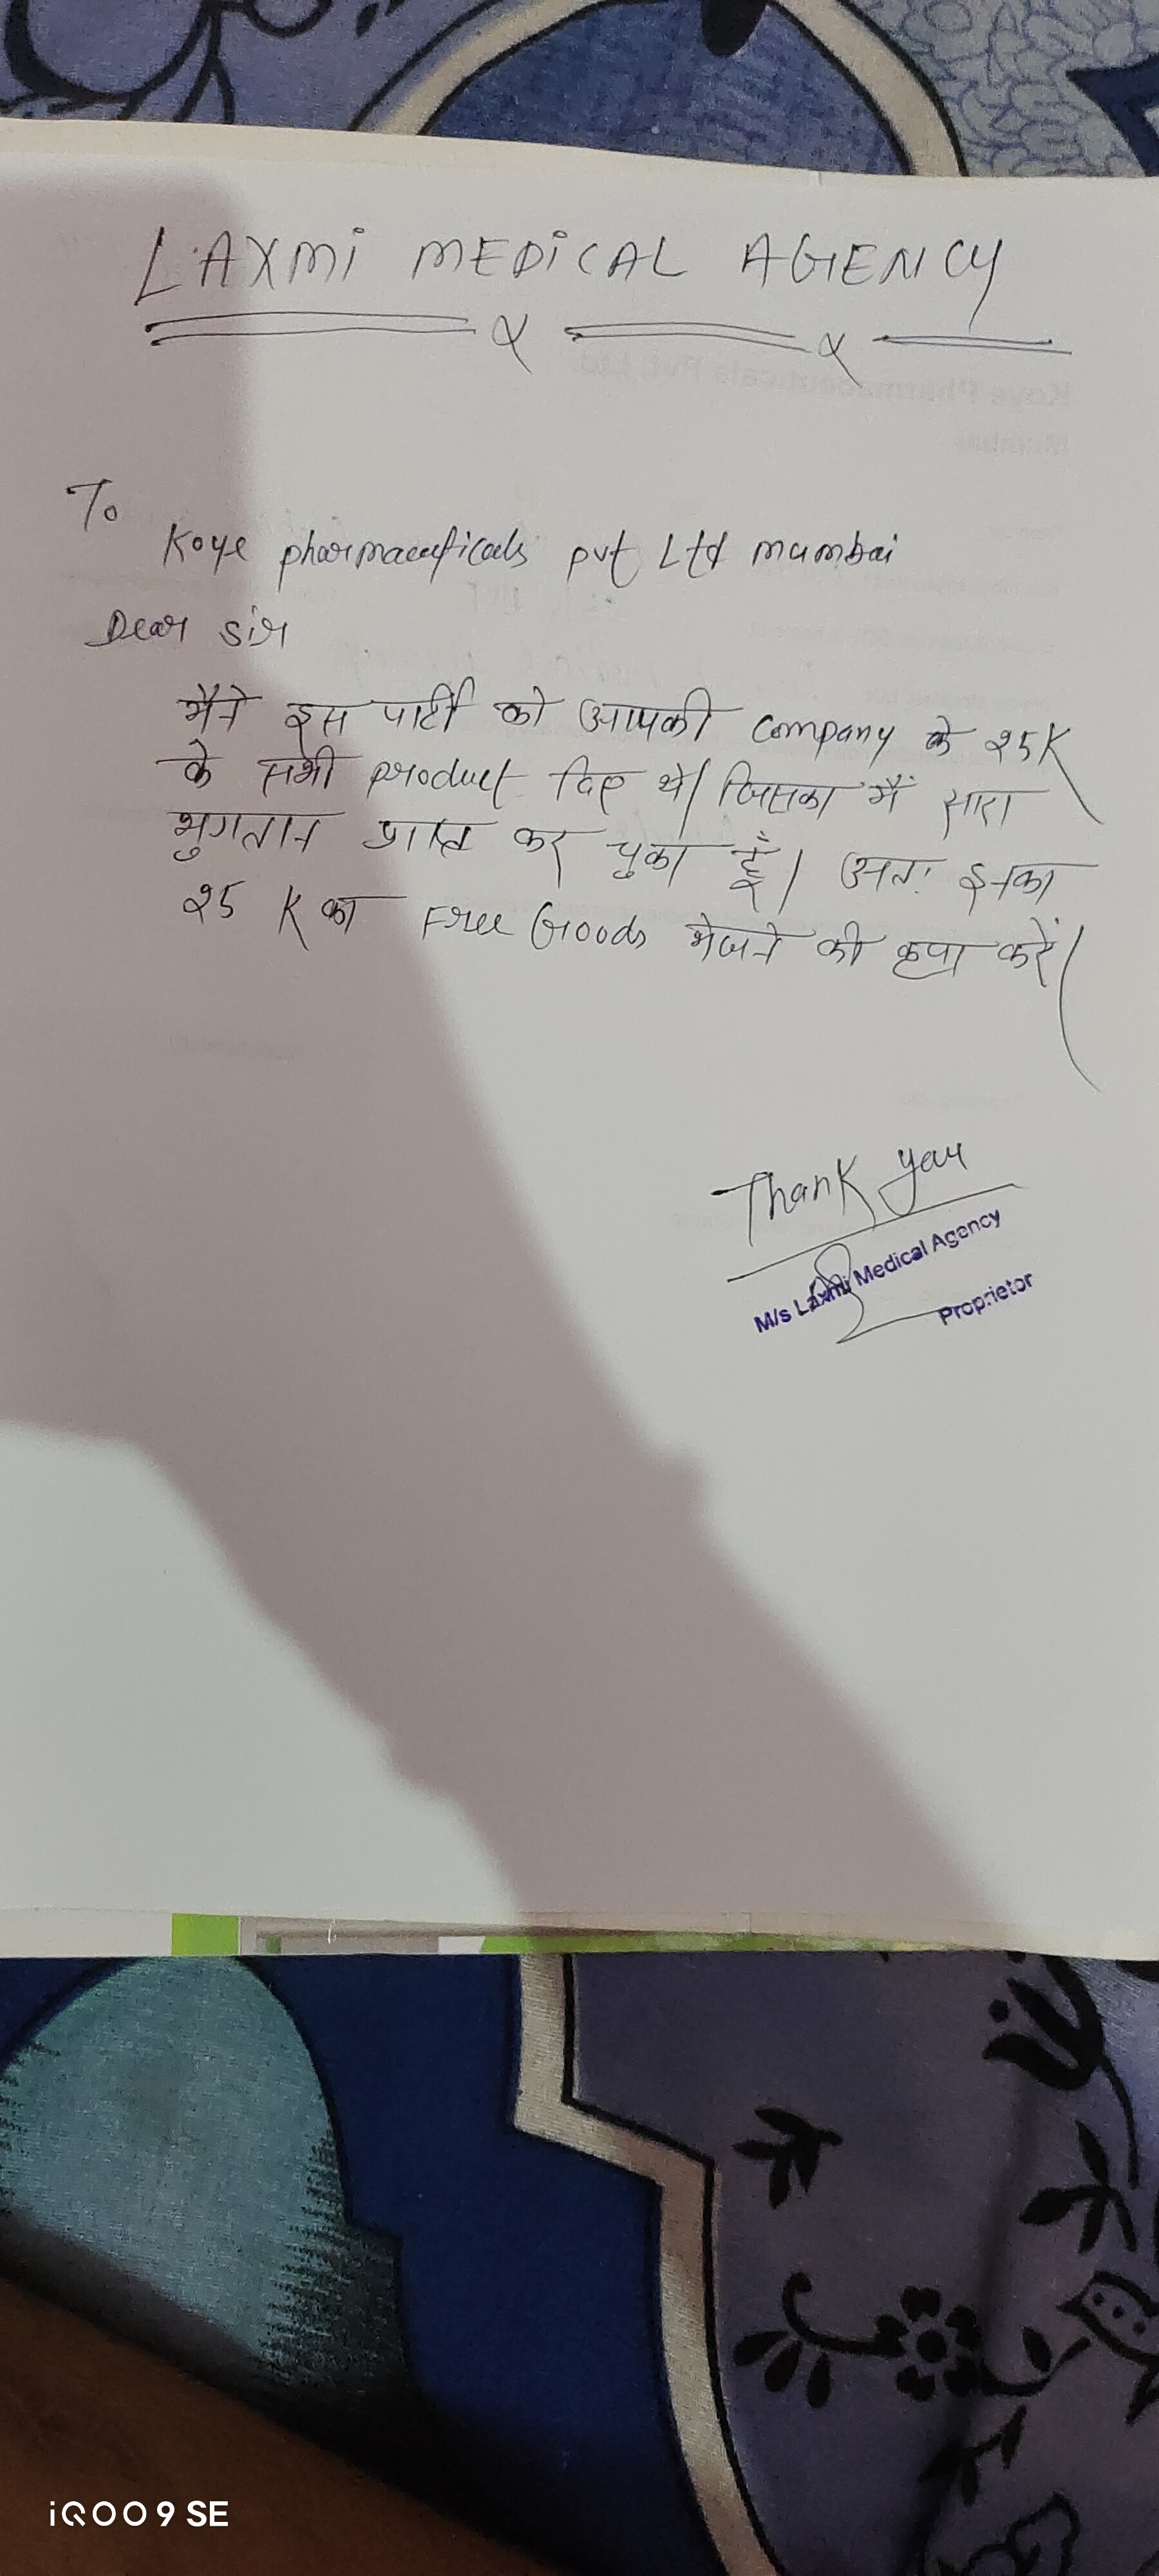 LAXMI MEDICAL AGENCY
To
Koye pharmaceuticals pvt Ltd mumbai
Dear sir
मैने इस पार्टी को आपकी Company के 25K
के सभी product दिए थे। जिसका मैं सारा
भुगतान प्राप्त कर चुका हूँ। अतः इनका
25 K का Free Goods भेजने की कृपा करें।
Thank you
M/s Laxmi Medical Agency
Proprietor
iQOO 9 SE